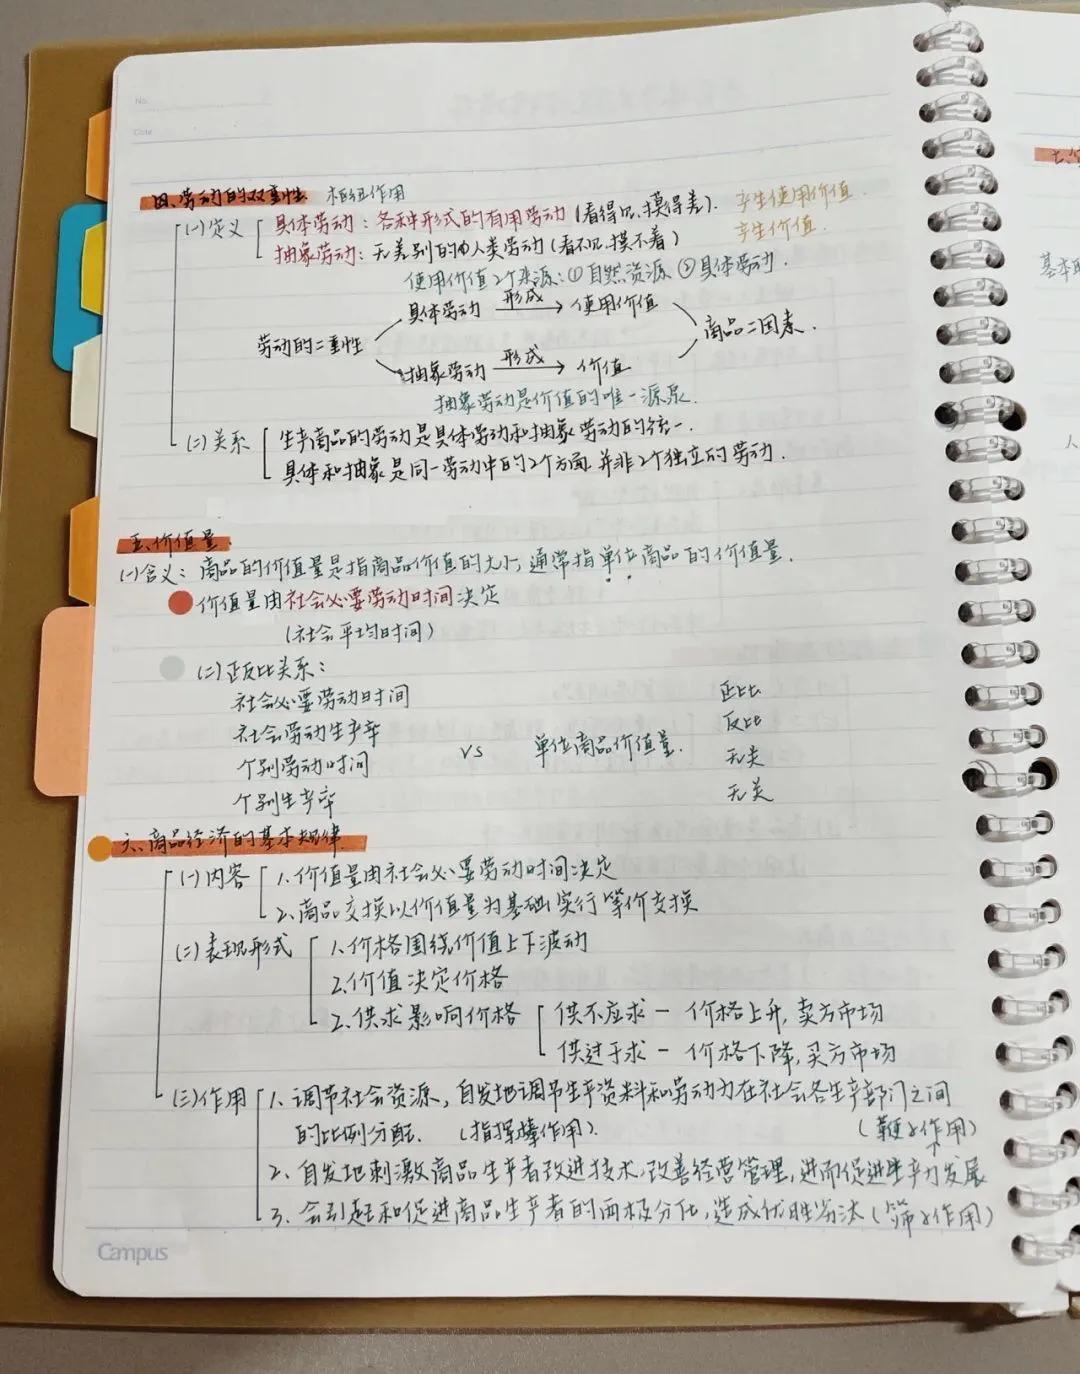 No.
Date
四、劳动的双重性 相纽作用
(一)定义 具体劳动：各种形式的有用劳动(看得见、摸得着). 产生使用价值.
抽象劳动：无差别的人类劳动(看不见摸不着) 产生价值.
使用价值2个来源：①自然资源 ②具体劳动.
具体劳动 形成→ 使用价值
劳动的二重性 商品二因素.
抽象劳动 形成→ 价值
抽象劳动是价值的唯一源泉.
(二)关系 生产商品的劳动是具体劳动和抽象劳动的统一.
具体和抽象是同一劳动中的2个方面 并非2个独立的劳动.
五、价值量.
(一)含义：商品的价值量是指商品价值的大小, 通常指单位商品的价值量.
价值量由社会必要劳动时间决定
(社会平均时间)
(二)正反比关系：
社会必要劳动时间 正比
社会劳动生产率 反比
个别劳动时间 vs 单位商品价值量. 无关
个别生产率 无关
六、商品经济的基本规律
(一)内容 1.价值量由社会必要劳动时间决定
2.商品交换以价值量为基础,实行等价交换
(二)表现形式 1.价格围绕价值上下波动
2.价值决定价格
2.供求影响价格 供不应求 - 价格上升, 卖方市场
供过于求 - 价格下降, 买方市场
(三)作用 1.调节社会资源, 自发地调节生产资料和劳动力在社会各生产部门之间
的比例分配. (指挥棒作用). (鞭子作用)
2.自发地刺激商品生产者改进技术,改善经营管理,进而促进生产力发展
3.会引起和促进商品生产者的两极分化,造成优胜劣汰(筛子作用)
Campus
七、
人